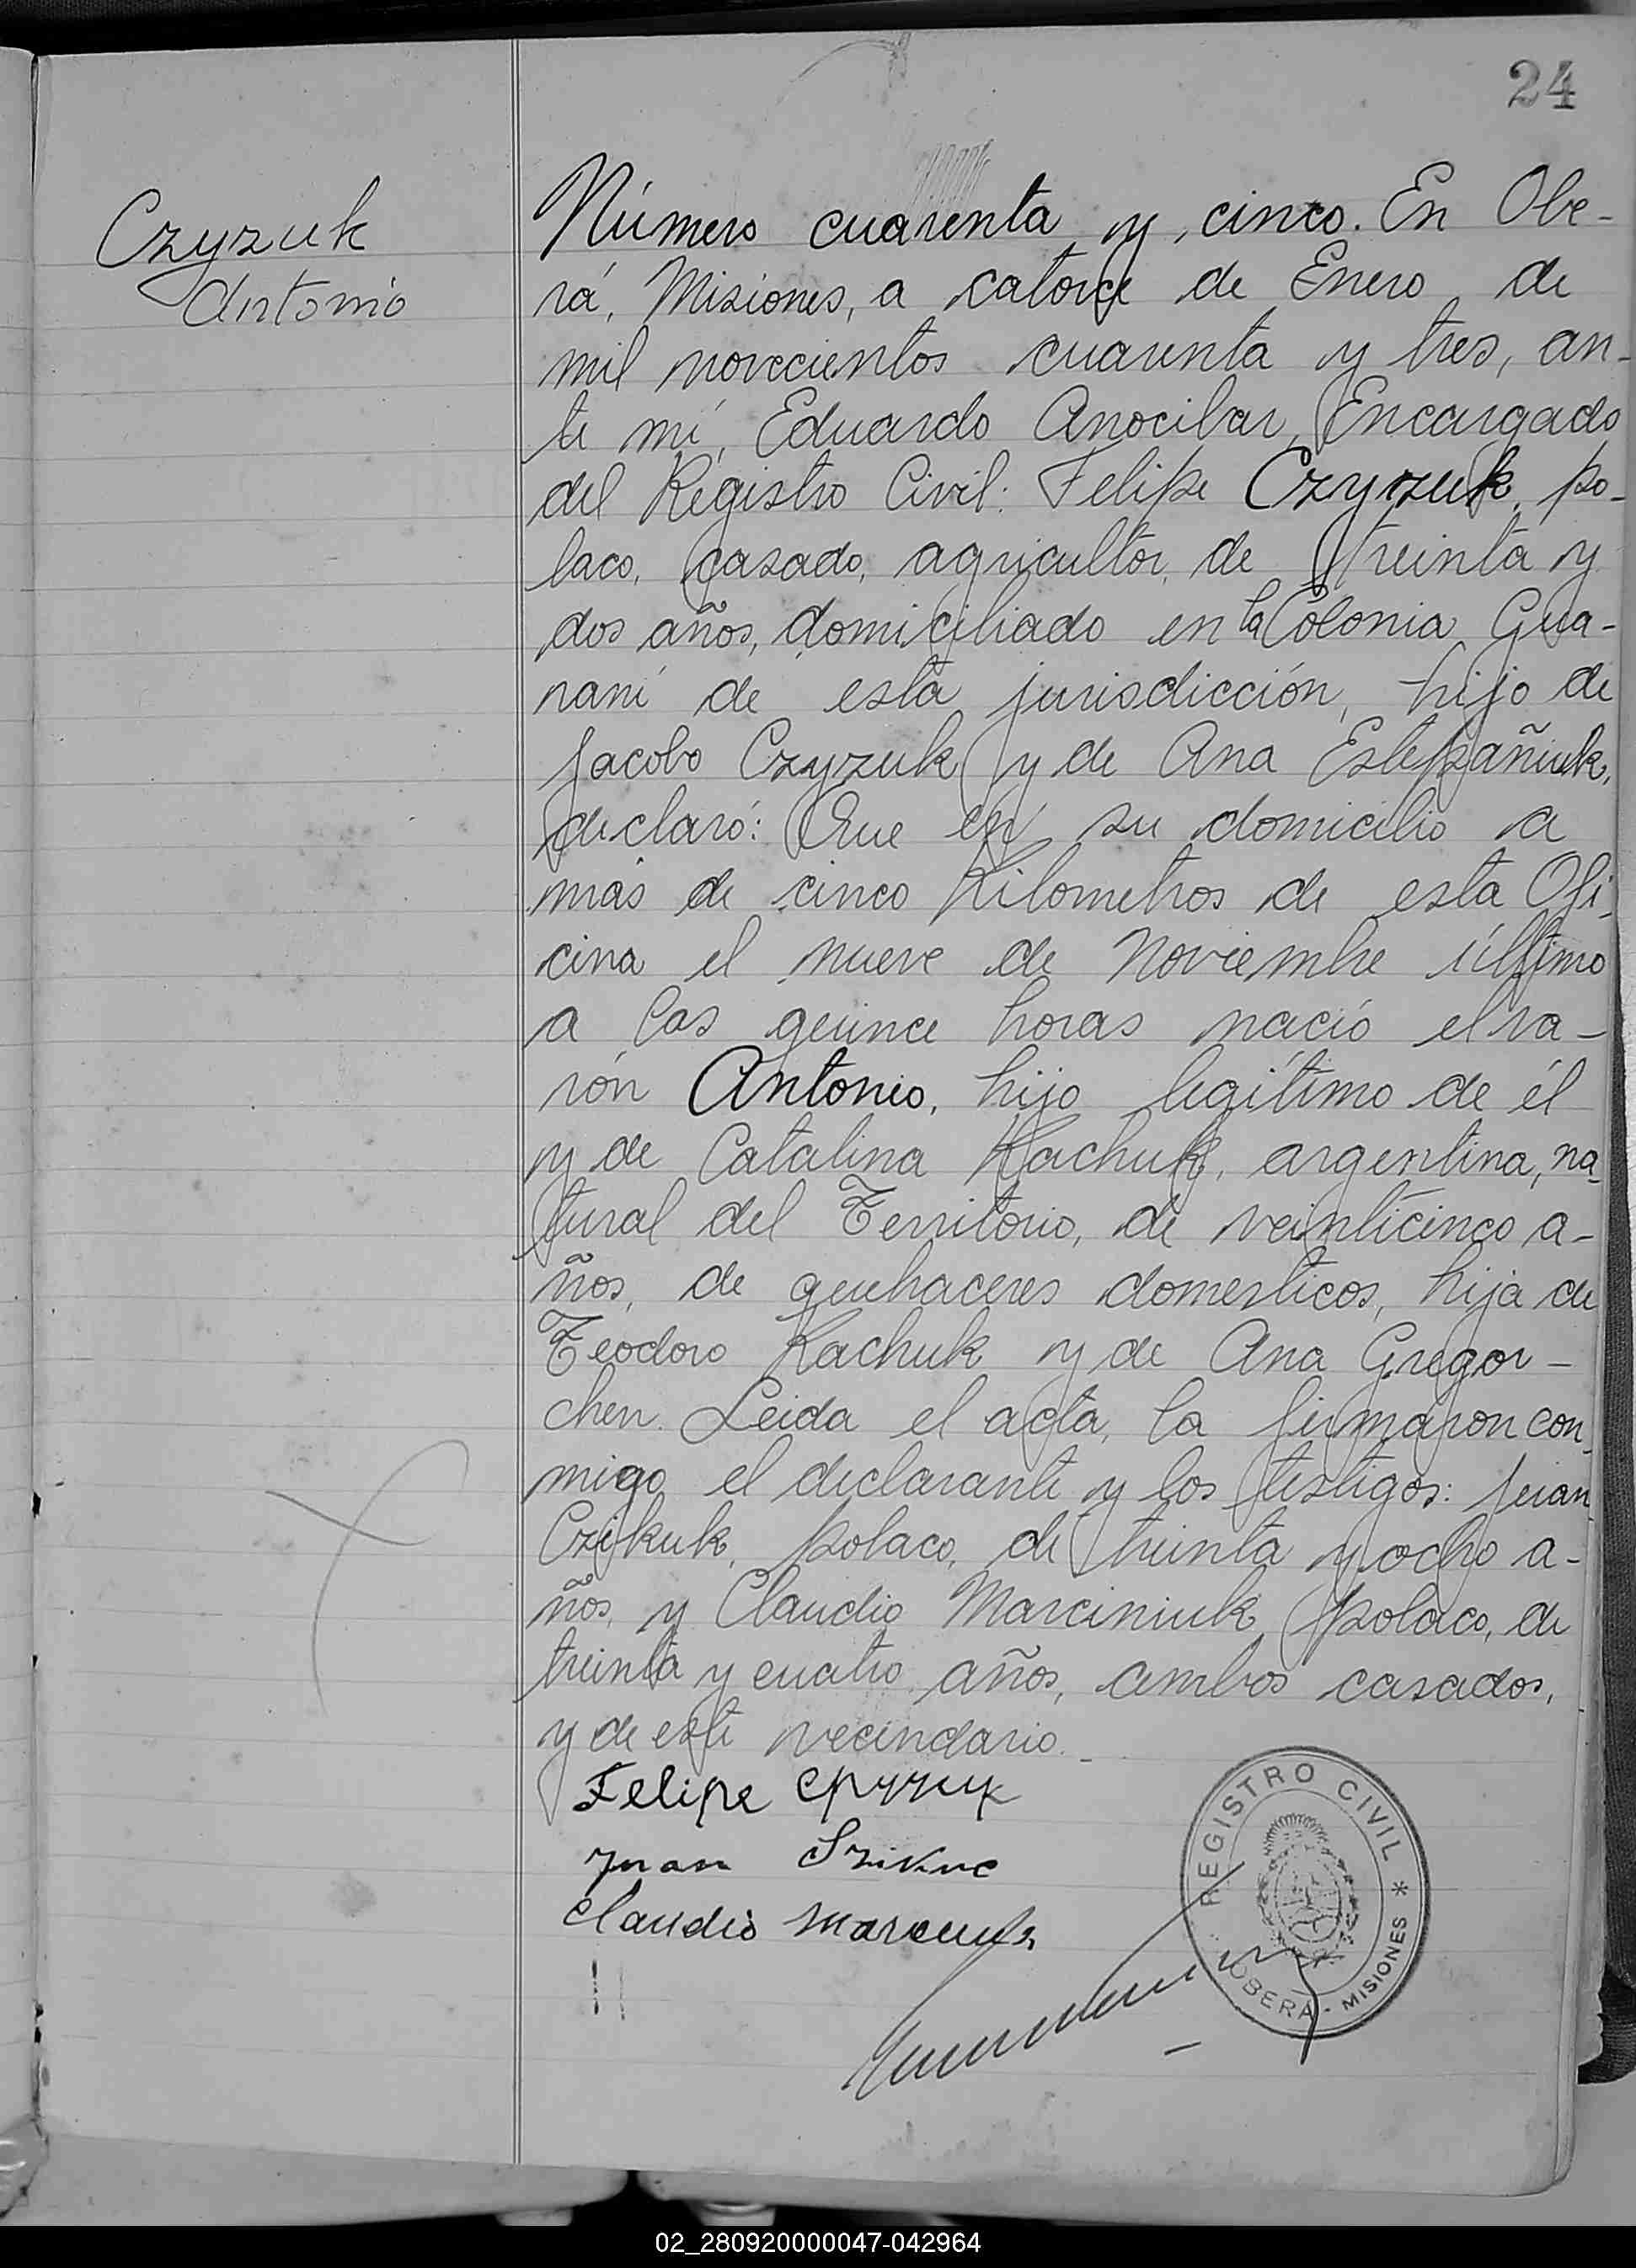 24
Czyzuk
Antonio
Número cuarenta y cinco. En Obe-
rá, Misiones, a catorce de Enero de
mil novecientos cuarenta y tres, an-
te mí, Eduardo Anocibar, Encargado
del Registro Civil: Felipe Czyzuk, po-
laco, casado, agricultor, de treinta y
dos años, domiciliado en la Colonia Gua-
raní de esta jurisdicción, hijo de
Jacobo Czyzuk y de Ana Estepañiuk,
declaró: Que en su domicilio a
más de cinco Kilometros de esta Ofi-
cina el nueve de Noviembre último
a las quince horas nació el va-
rón Antonio, hijo legítimo de él
y de Catalina Kachuk, argentina, na-
tural del Territorio, de veinticinco a-
ños, de quehaceres domesticos, hija de
Teodoro Kachuk y de Ana Gregor-
chen. Leida el acta, la firmaron con-
migo el declarante y los testigos: Juan
Czikuk, polaco, de treinta y ocho a-
ños, y Claudio Marciniuk, polaco, de
treinta y cuatro años, ambos casados,
y de este vecindario.-
Felipe
Juan
Claudio
REGISTRO CIVIL *
OBERA - MISIONES
02_280920000047-042964